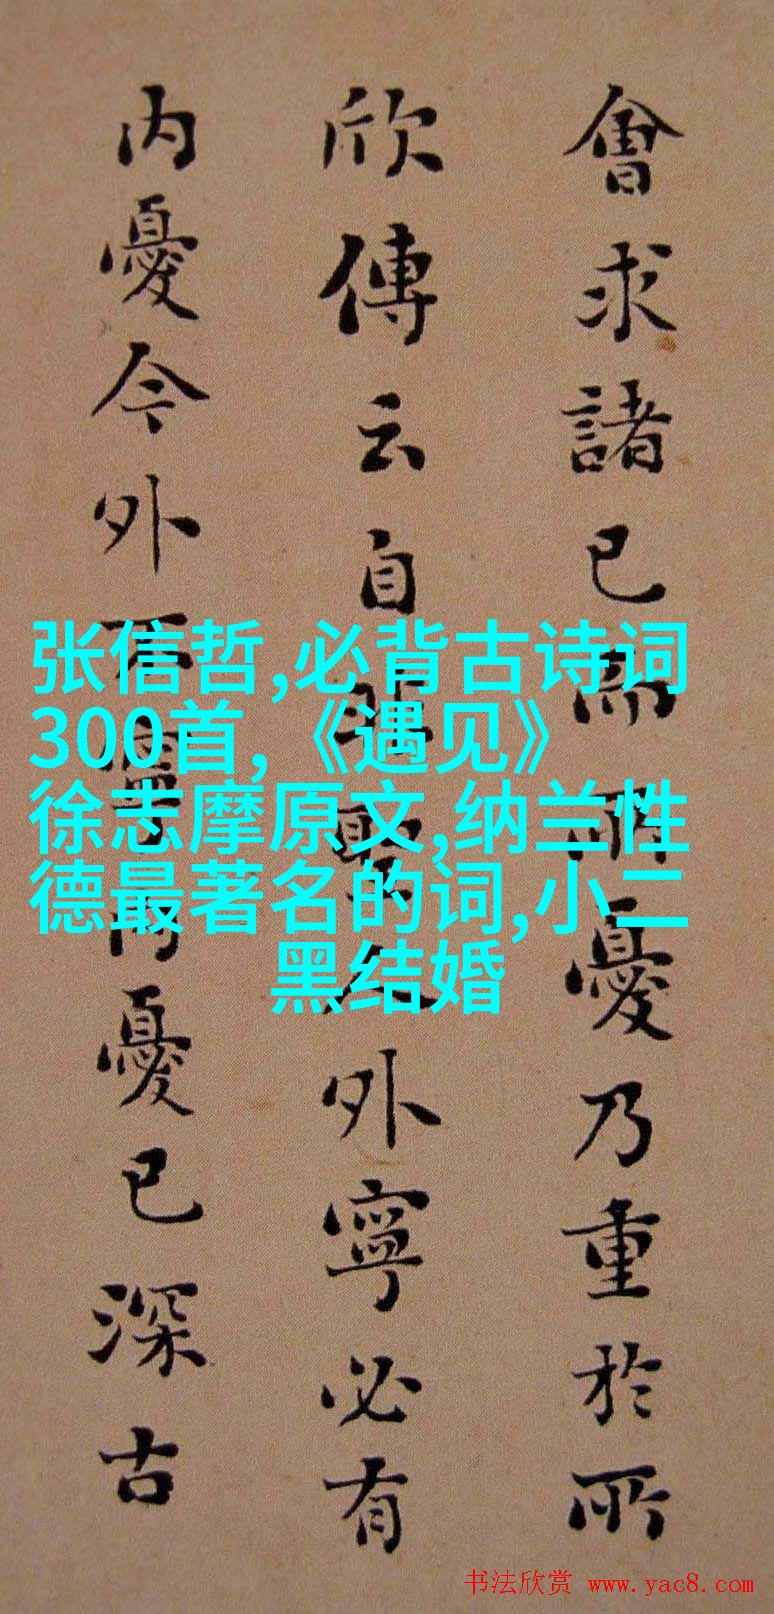 會求諸己而所憂乃重於所
欣傳云自非聖人外寧必有
内憂今外不寧内憂已深古
张信哲,必背古诗词
300首,《遇见》
徐志摩原文,纳兰性
德最著名的词,小二
黑结婚
书法欣赏 www.yac8.com